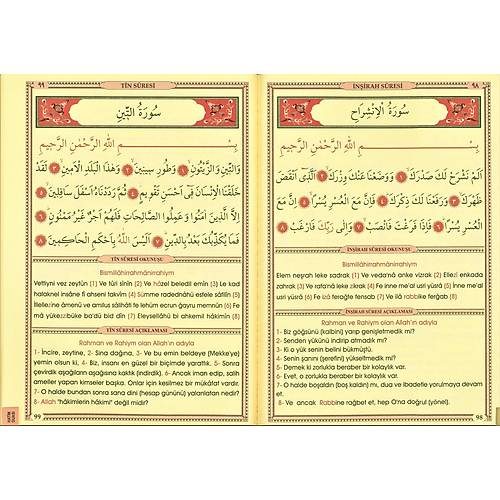 ٩٩
TÎN SÛRESİ
سُورَةُ التِّينِ
بِسْــــــمِ اللّٰهِ الرَّحْمٰنِ الرَّحِيمِ
وَالتِّينِ وَالزَّيْتُونِ ﴿١﴾ وَطُورِ سِينِينَ ﴿٢﴾ وَهٰذَا الْبَلَدِ الْاَمِينِ ﴿٣﴾ لَقَدْ
خَلَقْنَا الْاِنْسَانَ فِي اَحْسَنِ تَقْوِيمٍ ﴿٤﴾ ثُمَّ رَدَدْنَاهُ اَسْفَلَ سَافِلِينَ ﴿٥﴾
اِلَّا الَّذِينَ اٰمَنُوا وَعَمِلُوا الصَّالِحَاتِ فَلَهُمْ اَجْرٌ غَيْرُ مَمْنُونٍ ﴿٦﴾
فَمَا يُكَذِّبُكَ بَعْدُ بِالدِّينِ ﴿٧﴾ اَلَيْسَ اللّٰهُ بِاَحْكَمِ الْحَاكِمِينَ ﴿٨﴾
TÎN SÛRESİ OKUNUŞU
Bismillâhirrahmânirrahiym
Vettiyni vez zeytûn (1) Ve tûri sînîn (2) Ve hâzel beledil emîn (3) Le kad
halaknel insâne fî ahseni takvîm (4) Sümme radednâhü esfele sâfilîn (5)
İllellezîne âmenû ve amilus sâlihâti felehüm ecrun ğayru memnûn (6) Fe
mâ yükezzibüke ba'dü bid dîn (7) Eleysellâhü bi ahkemil hâkimîn (8)
TÎN SÛRESİ AÇIKLAMASI
Rahman ve Rahiym olan Allah'ın adıyla
1- İncire, zeytine, 2- Sina dağına, 3- Ve bu emin beldeye (Mekke'ye)
yemin olsun ki, 4- Biz, insanı en güzel bir biçimde yarattık. 5- Sonra
çevirdik aşağıların aşağısına kaktık (indirdik). 6- Ancak iman edip, salih
ameller yapan kimseler başka. Onlar için kesilmez bir mükâfat vardır.
7- O halde bundan sonra sana dini (hesap gününü) yalanlatan nedir?
8- Allah "hâkimlerin hâkimi" değil midir?
99
İNŞİRAH SÛRESİ
٩٨
سُورَةُ الْاِنْشِرَاحِ
بِسْــــــمِ اللّٰهِ الرَّحْمٰنِ الرَّحِيمِ
اَلَمْ نَشْرَحْ لَكَ صَدْرَكَ ﴿١﴾ وَوَضَعْنَا عَنْكَ وِزْرَكَ ﴿٢﴾ اَلَّذِي اَنْقَضَ
ظَهْرَكَ ﴿٣﴾ وَرَفَعْنَا لَكَ ذِكْرَكَ ﴿٤﴾ فَاِنَّ مَعَ الْعُسْرِ يُسْرًا ﴿٥﴾ اِنَّ مَعَ
الْعُسْرِ يُسْرًا ﴿٦﴾ فَاِذَا فَرَغْتَ فَانْصَبْ ﴿٧﴾ وَاِلٰى رَبِّكَ فَارْغَبْ ﴿٨﴾
İNŞİRAH SÛRESİ OKUNUŞU
Bismillâhirrahmânirrahiym
Elem neşrah leke sadrak (1) Ve veda'nâ anke vizrak (2) Ellezî enkada
zahrak (3) Ve rafa'nâ leke zikrak (4) Fe inne me'al usri yüsrâ (5) İnne me'al
usri yüsrâ (6) Fe izâ ferağte fensab (7) Ve ilâ rabbike ferğab (8)
İNŞİRAH SÛRESİ AÇIKLAMASI
Rahman ve Rahiym olan Allah'ın adıyla
1- Biz göğsünü (kalbini) yarıp genişletmedik mi?
2- Senden yükünü indirip atmadık mı?
3- Ki a yük senin belini bükmüştü.
4- Senin şanını yükseltmedik mi?
5- Demek ki zorlukla beraber bir kolaylık var.
6- Evet, o zorlukla beraber bir kolaylık var.
7- O halde boşaldın (boş kaldın) mı, dua ve ibadetle yorulmaya devam
et.
8- Ve ancak Rabbine rağbet et, hep O'na doğrul (yönel).
98